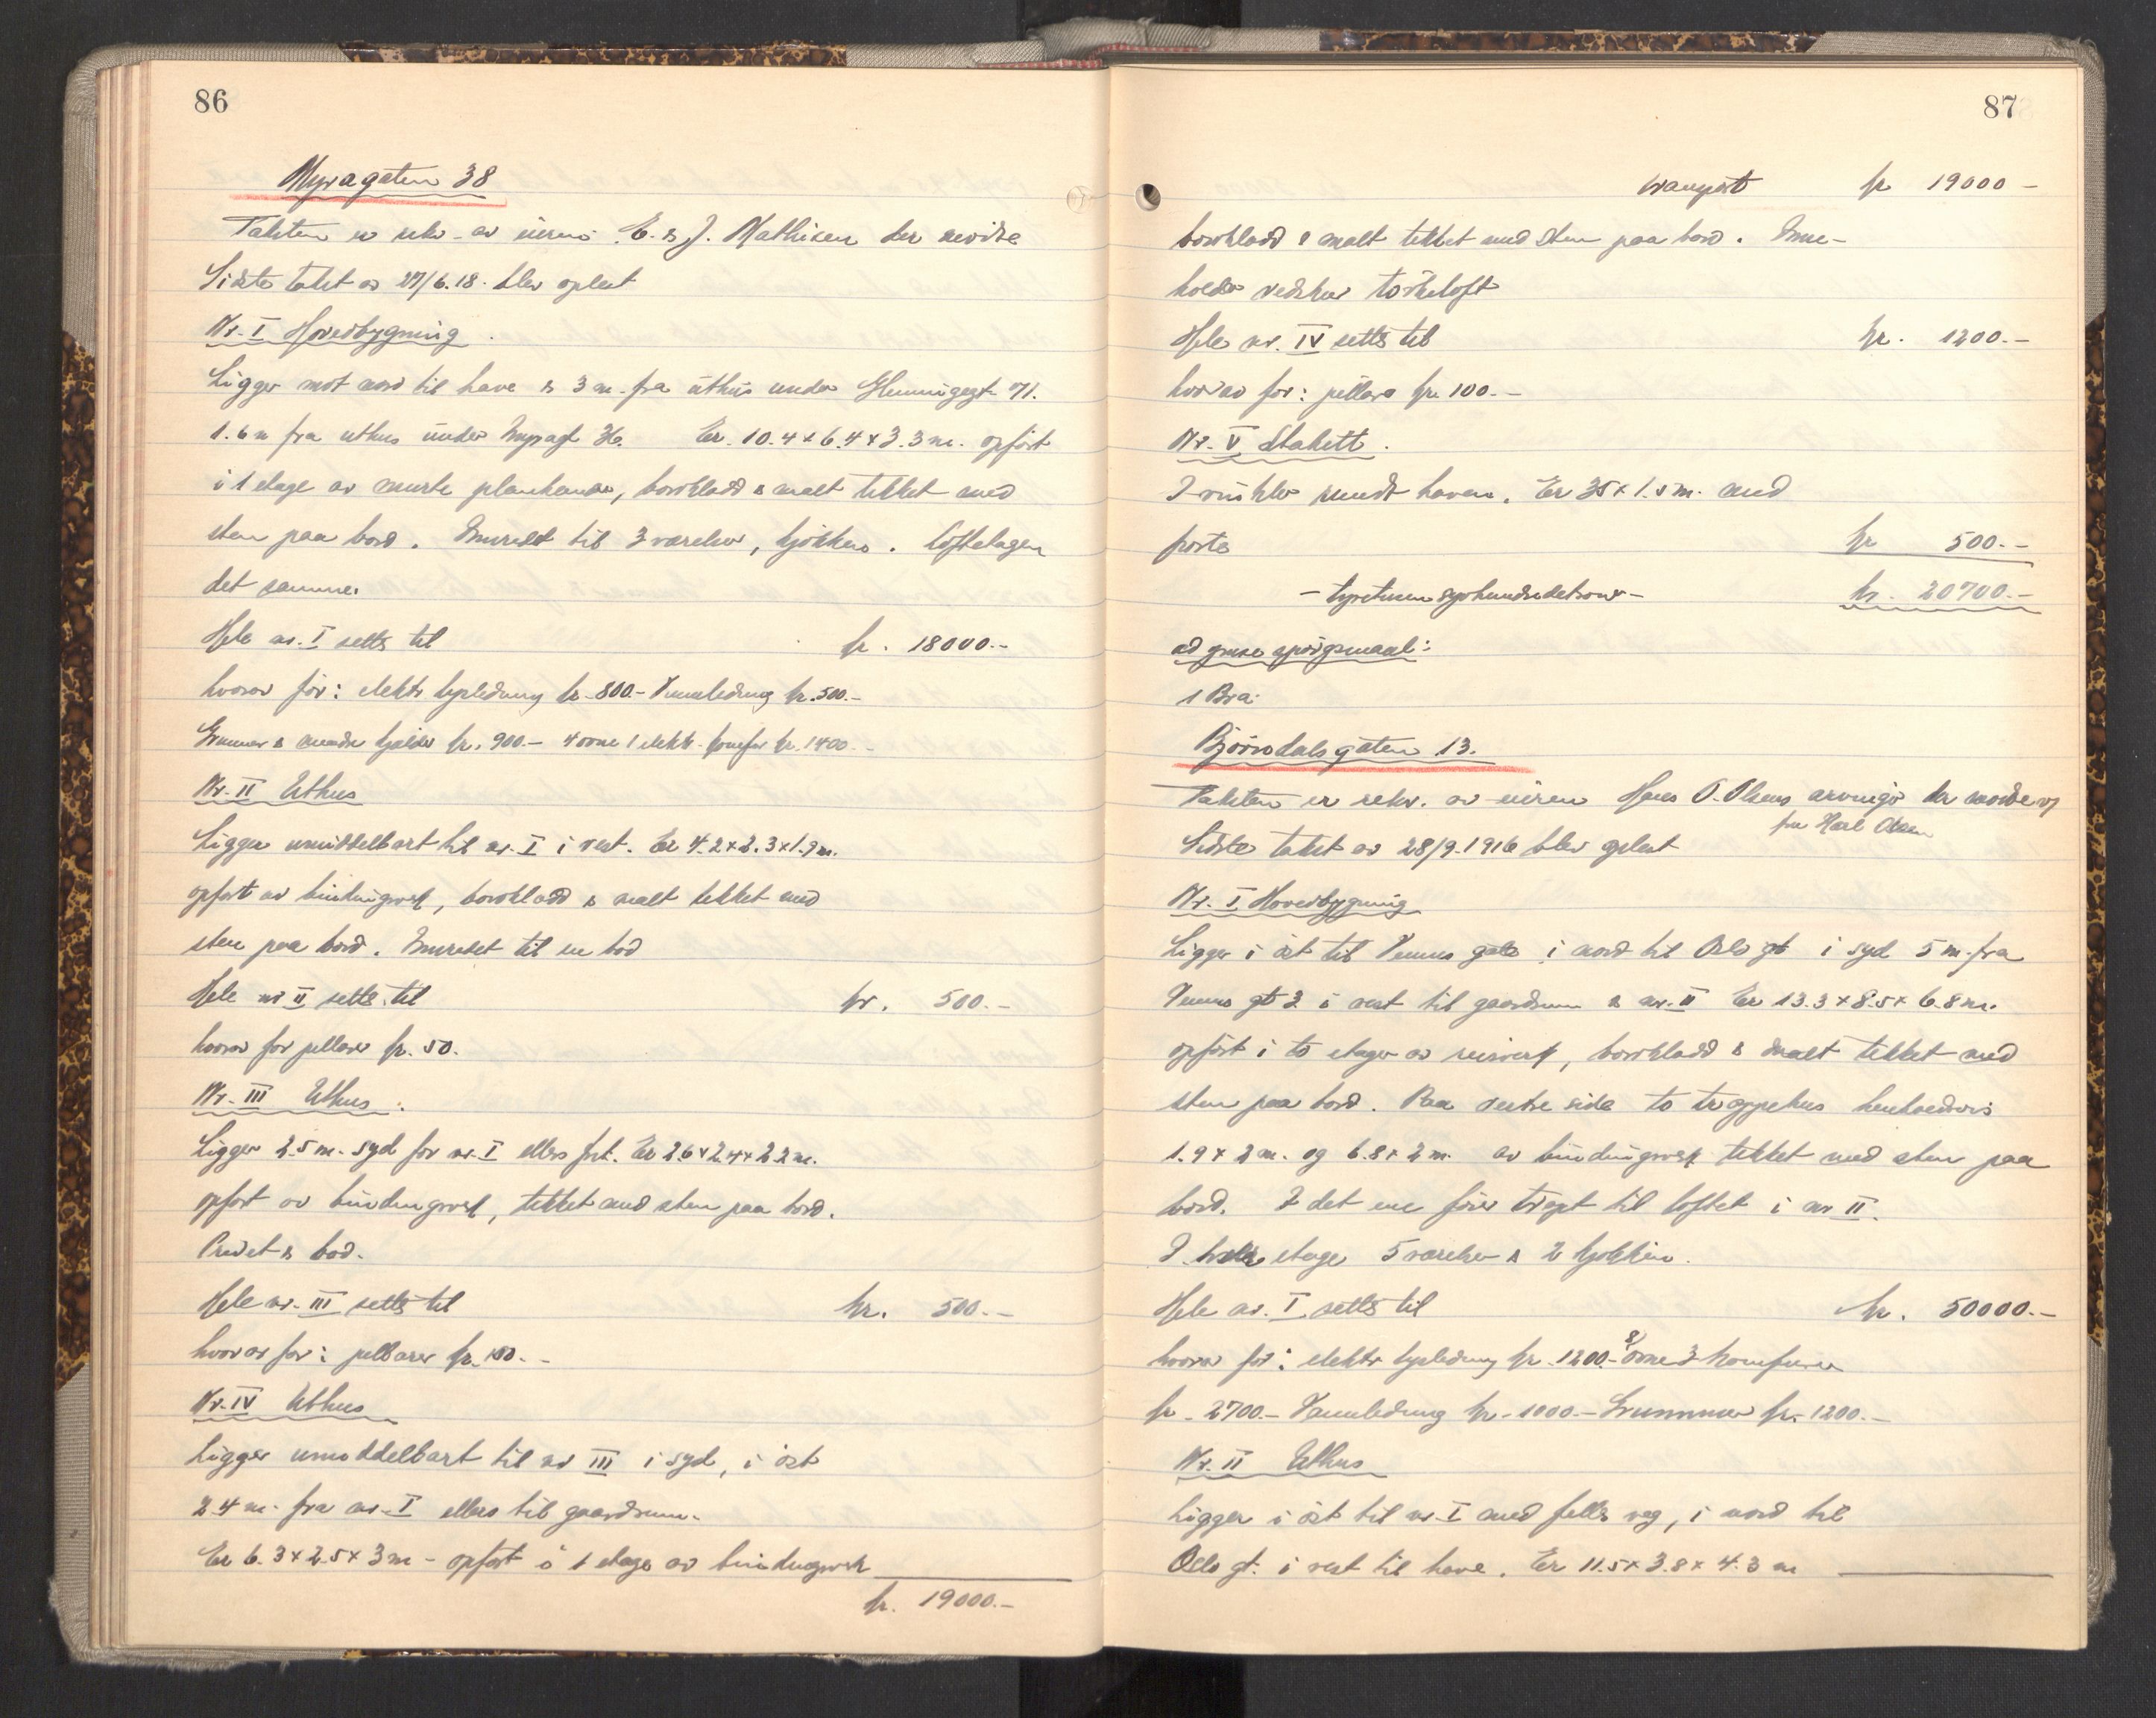 86
Myragaten 38
Taksten er rekv. av eieren E. & J. Mathisen der møtte
Sidste takst av 27/6.18. blev oplest
Nr. I Hovedbygning.
Ligger mot nord til have & 3 m. fra uthus under Glemmigegt 71.
1.6 m fra uthus under Myragt 36. Er 10.4 x 6.4 x 3.3 m. opført
i 1 etage av murte plankeme, bordklædd & malt tekket med
sten paa bord. Innredet til 3 værelser, kjøkken. Loftetagen
det samme.
Hele nr. I settes til kr. 18000.-
hvorav for: elektr lysledning kr. 800.- Vannledning kr. 500.-
Grunmur & mindre kjelder kr. 900.- 4 ovne 1 elektr. komfur kr. 1400.-
Nr. II Uthus
Ligger umiddelbart til nr. I i vest. Er 4.2 x 2.3 x 1.9 m.
opført av bindingverk, bordklædd & malt tekket med
sten paa bord. Innredet til en bod
Hele nr II settes til kr. 500.-
hvorav for pillarer kr. 50.
Nr. III Uthus.
Ligger 2.5 m. syd for nr. I ellers frit. Er 2.6 x 2.4 x 2.2 m.
opført av bindingverk, tekket med sten paa bord.
Privet & bod.
Hele nr. III settes til kr. 500.-
hvorav for: pillarer kr. 100.-
Nr. IV Uthus
Ligger umiddelbart til nr III i syd, i øst
2.4 m. fra nr. I ellers til gaardsrum.
Er 6.3 x 2.5 x 3 m - opført i 1 etage av bindingverk
kr. 19000.-
87
transport kr 19000-
bordklædd & malt tekket med sten paa bord. Inne-
holder vedskur tørkeloft
Hele nr. IV settes til kr. 1200.-
hvorav for: pillare kr. 100.-
Nr. V Stakitt.
I vinkler rundt haven. Er 35 x 1.5 m. med
porte kr 500.-
- tyvetusen syvhundrede kroner - kr. 20700.-
ad grense spørgsmaal:
1 Bra.
Bjørndalsgaten 13.
Taksten er rekv. av eieren Hans O. Olsens arvinger der møtte v/
fru Karl Olsen
Sidste takst av 28/9-1916 blev oplest
Nr. I Hovedbygning
Ligger i øst til Vennes gate i nord til Oslo gt i syd 5 m. fra
Vennes gt 2 i vest til gaardsrum & nr. II Er 13.3 x 8.5 x 6.8 m.
opført i to etager av reisverk, bordklædd & malt tekket med
sten paa bord. Paa vestre side to trappehus henholdsvis
1.9 x 2 m. og 6.8 x 2 m. av bindingverk tekket med sten paa
bord. I det ene fører trapt til loftet i nr II.
I hele etage 5 værelser & 2 kjøkken.
Hele nr. I settes til kr. 50000.-
hvorav for: elektr lysledning kr. 1200.- 8 ovne 3 komfurer
kr. 2700.- Vannledning kr. 1000.- Grunmur kr. 1200.-
Nr. II Uthus
Ligger i øst til nr. I med felles veg, i nord til
Oslo gt. i vest til have. Er 11.5 x 3.8 x 4.3 m